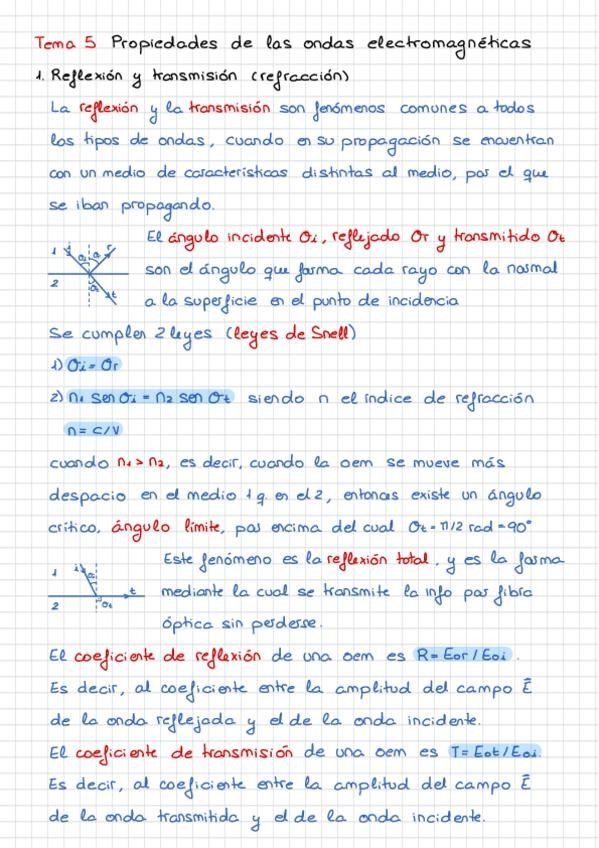 Tema 5 Propiedades de las ondas electromagnéticas
1. Reflexión y transmisión (refracción)
La reflexión y la transmisión son fenómenos comunes a todos
los tipos de ondas, cuando en su propagación se encuentran
con un medio de características distintas al medio, por el que
se iban propagando.
El ángulo incidente σi, reflejado σr y transmitido σt
son el ángulo que forma cada rayo con la normal
a la superficie en el punto de incidencia
1 i r
2 t
Se cumplen 2 leyes (leyes de Snell)
1) σi = σr
2) n1 sen σi = n2 sen σt siendo n el índice de refracción
n = c/v
cuando n1 > n2, es decir, cuando la oem se mueve más
despacio en el medio 1 q. en el 2, entonces existe un ángulo
crítico, ángulo límite, por encima del cual σt = π/2 rad = 90°
Este fenómeno es la reflexión total, y es la forma
mediante la cual se transmite la info por fibra
óptica sin perderse.
1 i t
2 σt
El coeficiente de reflexión de una oem es R = Eor / Eoi.
Es decir, al coeficiente entre la amplitud del campo Ē
de la onda reflejada y el de la onda incidente.
El coeficiente de transmisión de una oem es T = Eot / Eoi.
Es decir, al coeficiente entre la amplitud del campo Ē
de la onda transmitida y el de la onda incidente.